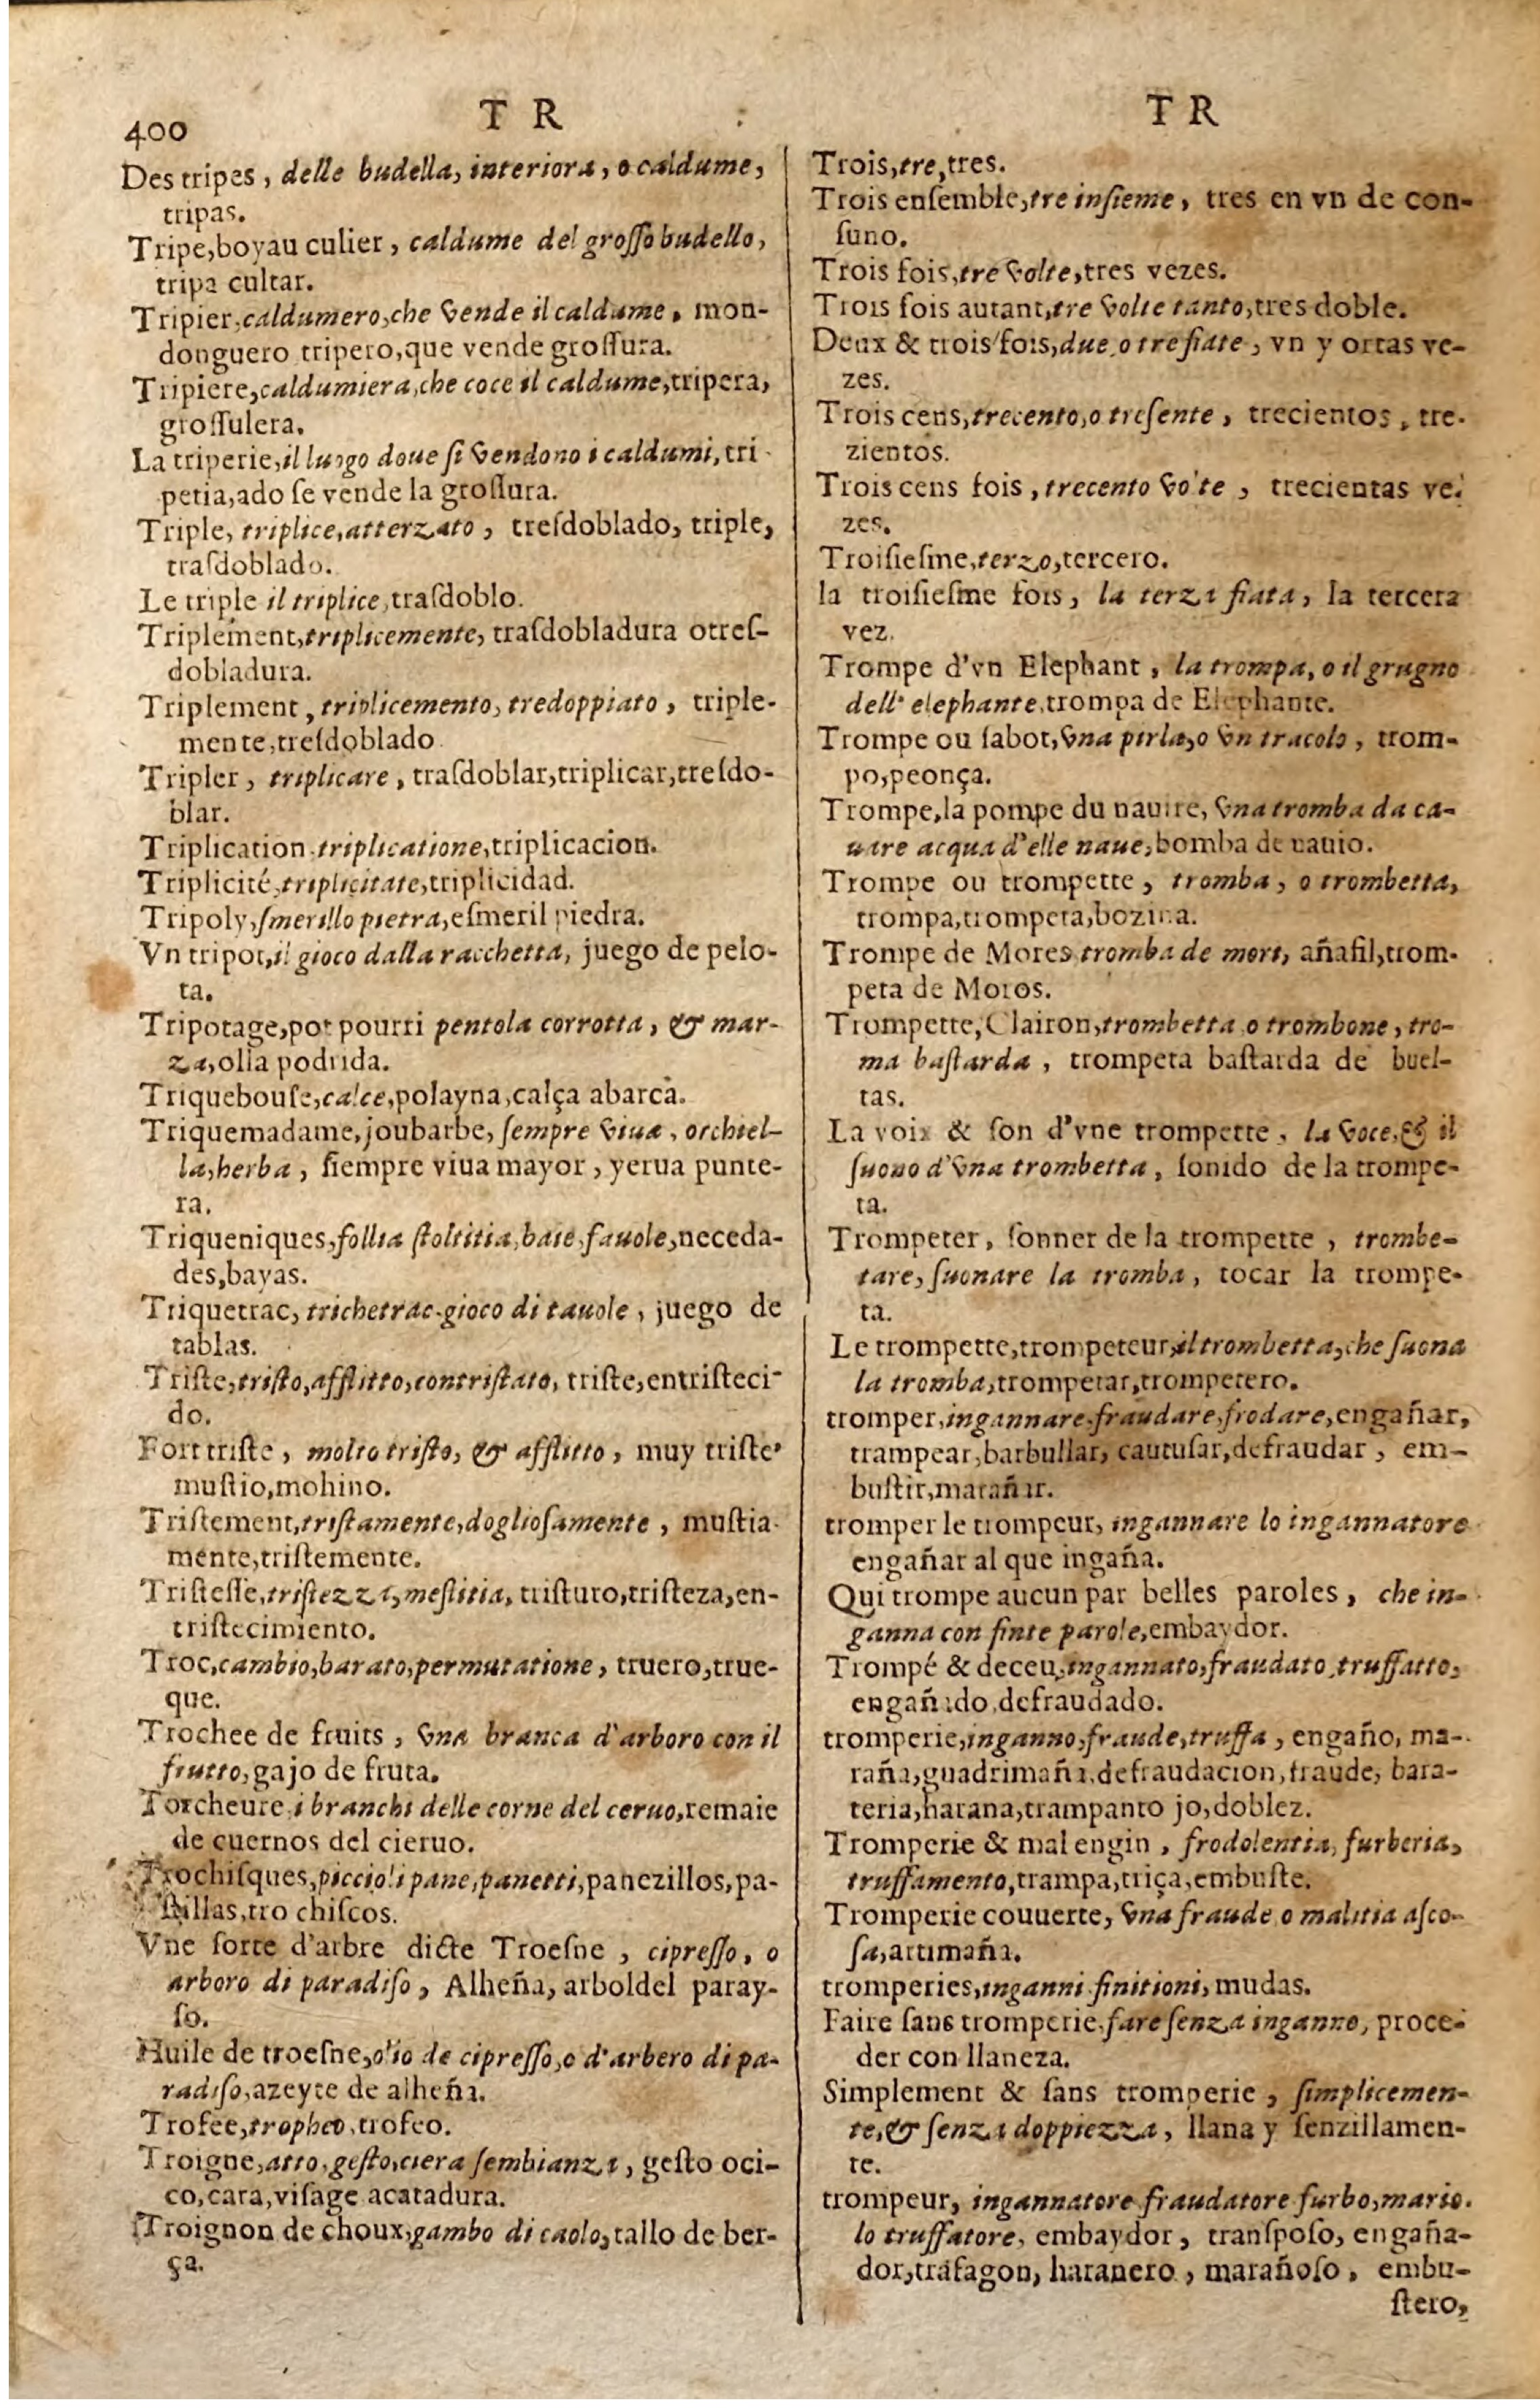 400
T R
Des tripes, delle budella, interiora, o caldume,
tripas.
Tripe, boyau culier, caldume del groſſo budello,
tripa cultar.
Tripier, caldumero, che vende il caldume, mon-
donguero tripero, que vende groſſura.
Tripiere, caldumiera, che coce il caldume, tripera,
groſſulera.
La triperie, il luogo doue ſi vendono i caldumi, tri
peria, ado ſe vende la groſſura.
Triple, triplice, atterzato, treſdoblado, triple,
traſdoblado.
Le triple il triplice, traſdoblo.
Triplement, triplicemente, traſdobladura otreſ-
dobladura.
Triplement, triplicemento, tredoppiato, triple-
mente, treſdoblado
Tripler, triplicare, traſdoblar, triplicar, treſdo-
blar.
Triplication, triplicatione, triplicacion.
Triplicité, triplicitate, triplicidad.
Tripoly, ſmerillo pietra, eſmeril piedra.
Vn tripot, il gioco dalla racchetta, juego de pelo-
ta.
Tripotage, pot pourri pentola corrotta, & mar-
za, olla podrida.
Triquebouſe, calce, polayna, calça abarca.
Triquemadame, joubarbe, ſempre viua, orchiel-
la, herba, ſiempre viua mayor, yerua punte-
ra.
Triqueniques, follia ſtoltitia, baie, fauole, neceda-
des, bayas.
Triquetrac, trichetrac gioco di tauole, juego de
tablas.
Triſte, triſto, afflitto, contriſtato, triſte, entriſteci-
do.
Fort triſte, molto triſto, & afflitto, muy triſte,
muſtio, mohino.
Triſtement, triſtamente, doglioſamente, muſtia
mente, triſtemente.
Triſteſſe, triſtezza, meſtitia, triſturo, triſteza, en-
triſtecimiento.
Troc, cambio, barato, permutatione, truero, true-
que.
Trochee de fruits, vna branca d'arboro con il
frutto, gajo de fruta.
Torcheure, i branchi delle corne del ceruo, remaie
de cuernos del cieruo.
Trochiſques, piccioli pane, panetti, panezillos, pa-
ſtillas, tro chiſcos.
Vne ſorte d'arbre dicte Troeſne, cipreſſo, o
arboro di paradiſo, Alheña, arboldel paray-
ſo.
Huile de troeſne, olio de cipreſſo, o d'arbero di pa-
radiſo, azeyte de alheña.
Trofee, tropheo, trofeo.
Troigne, atto, geſto, ciera ſembianza, geſto oci-
co, cara, viſage acatadura.
Troignon de choux, gambo di caolo, tallo de ber-
ça.
T R
Trois, tre, tres.
Trois enſemble, tre inſieme, tres en vn de con-
ſuno.
Trois fois, tre volte, tres vezes.
Trois fois autant, tre volte tanto, tres doble.
Deux & trois fois, due, o tre fiate, vn y ortas ve-
zes.
Trois cens, trecento, o treſente, trecientos, tre-
zientos.
Trois cens fois, trecento volte, trecientas ve-
zes.
Troiſieſme, terzo, tercero.
la troiſieſme fois, la terza fiata, la tercera
vez.
Trompe d'vn Elephant, la trompa, o il grugno
dell' elephante, trompa de Elephante.
Trompe ou ſabot, vna pirla, o vn tracolo, trom-
po, peonça.
Trompe, la pompe du nauire, vna tromba da ca-
uare acqua d'elle naue, bomba de nauio.
Trompe ou trompette, tromba, o trombetta,
trompa, trompeta, bozina.
Trompe de Mores tromba de mori, añafil, trom-
peta de Moros.
Trompette, Clairon, trombetta o trombone, tro-
ma baſtarda, trompeta baſtarda de buel-
tas.
La voix & ſon d'vne trompette, la voce, & il
ſuono d'vna trombetta, ſonido de la trompe-
ta.
Trompeter, ſonner de la trompette, trombe-
tare, ſuonare la tromba, tocar la trompe-
ta.
Le trompette, trompeteur, il trombetta, che ſuona
la tromba, trompetar, trompetero.
tromper, ingannare, fraudare, frodare, engañar,
trampear, barbullar, cautuſar, defraudar, em-
buſtir, marañar.
tromper le trompeur, ingannare lo ingannatore
engañar al que ingaña.
Qui trompe aucun par belles paroles, che in-
ganna con finte parole, embaydor.
Trompé & deceu, ingannato, fraudato, truffatto,
engañado, defraudado.
tromperie, inganno, fraude, truffa, engaño, ma-
raña, guadrimaña, defraudacion, fraude, bara-
teria, harana, trampanto jo, doblez.
Tromperie & mal engin, frodolentia, furberia,
truffamento, trampa, triça, embuſte.
Tromperie couuerte, vna fraude o malitia aſco-
ſa, artimaña.
tromperies, inganni finitioni, mudas.
Faire ſans tromperie, fare ſenza inganno, proce-
der con llaneza.
Simplement & ſans tromperie, ſimplicemen-
te, & ſenza doppiezza, llana y ſenzillamen-
te.
trompeur, ingannatore fraudatore furbo, mario.
lo truffatore, embaydor, tranſpoſo, engaña-
dor, trafagon, haranero, marañoſo, embu-
ſtero,